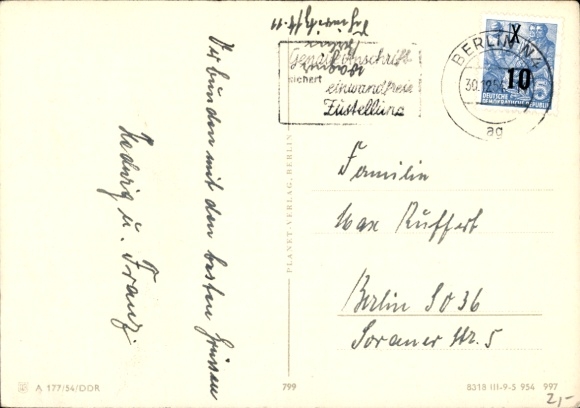 Verbunden mit den besten Grüssen
Hedwig u. Franz.
Genaue Anschrift
sichert
einwandfreie
Zustellung
BERLIN N4
30.12.54
ag
X
10
DEUTSCHE
DEMOKRATISCHE REPUBLIK
5
Familie
Max Ruffert
Berlin SO 36
Sorauer Str. 5
PLANET-VERLAG, BERLIN
A 177/54/DDR
799
8318 III-9-5 954 997
2,-